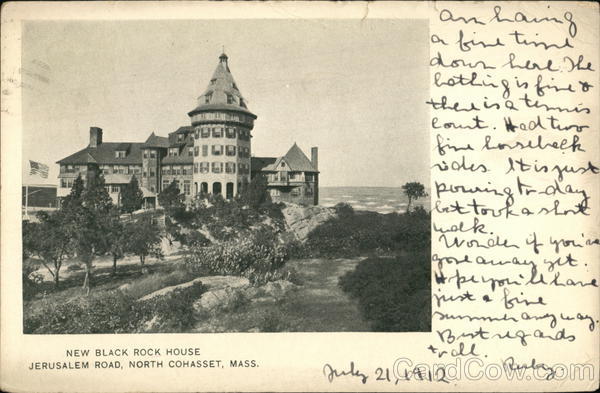 am having
a fine time
down here. The
bathing is fine &
there is a tennis
court. Had two
fine horseback
rides. It is just
pouring to-day
but took a short
walk.
Wonder if you've
gone away yet.
Hope you'll have
just a fine
summer anyway.
Best regards
to all. Ruby
NEW BLACK ROCK HOUSE
JERUSALEM ROAD, NORTH COHASSET, MASS.
July 21, 1912
CardCow.com®